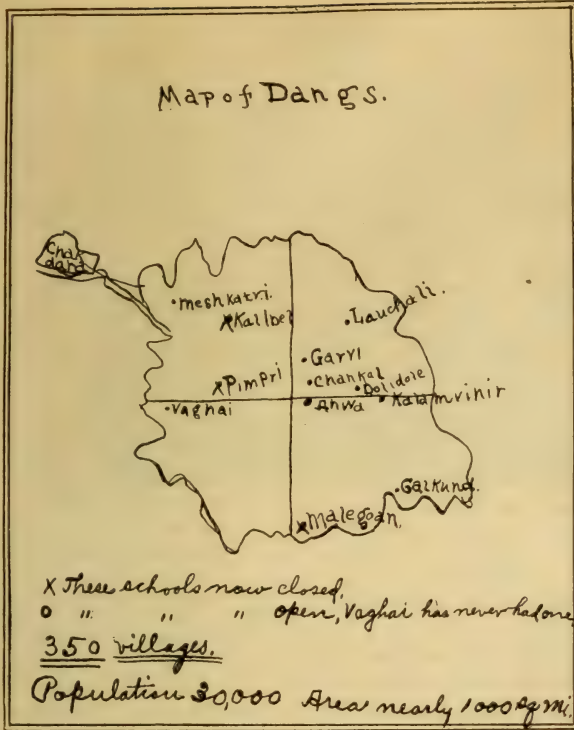 Map of Dangs.
Cha
dana
meshkatri.
Kallbel
Lauchali.
Garvi
Pimpri
Chankal
Dolidore
Vaghai
Ahwa
Kalamvinir
Galkund.
Malegoan.
X These schools now closed,
o " " " open, Vaghai has never had one,
350 villages.
Population 30,000 Area nearly 1000 sq mi.